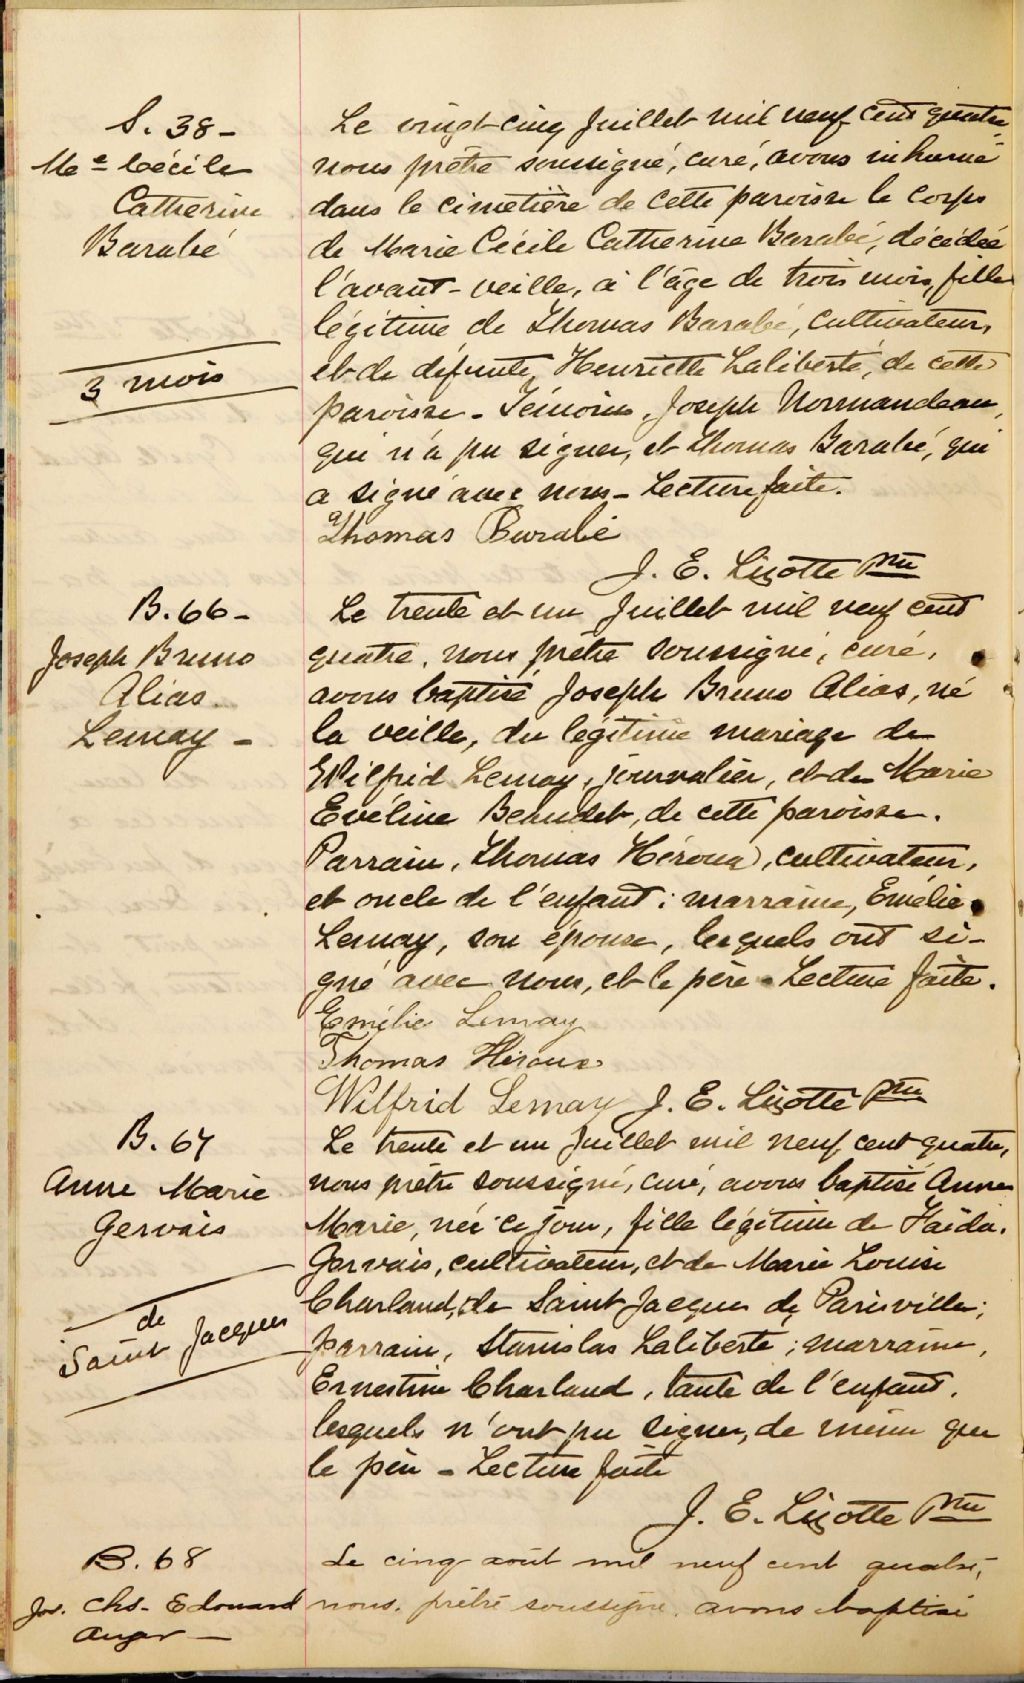 S. 38 -
Mie Cécile
Catherine
Barabé
3 mois
Le vingt-cinq Juillet mil neuf cent quatre
nous prêtre soussigné, curé, avons inhumé
dans le cimetière de cette paroisse le corps
de Marie Cécile Catherine Barabé, décédée
l'avant-veille, à l'âge de trois mois, fille
légitime de Thomas Barabé, cultivateur,
et de défunte Henriette Laliberté, de cette
paroisse - Témoins, Joseph Normandeau,
qui n'a pu signer, et Thomas Barabé, qui
a signé avec nous - Lecture faite.
Thomas Barabé
J. E. Lizotte Ptre
B. 66 -
Joseph Bruno
Alias
Lemay -
Le trente et un Juillet mil neuf cent
quatre, nous prêtre soussigné, curé,
avons baptisé Joseph Bruno Alias, né
la veille, du légitime mariage de
Wilfrid Lemay, journalier, et de Marie
Evéline Beaudet, de cette paroisse.
Parrain, Thomas Héroux, cultivateur,
et oncle de l'enfant; marraine, Emélie
Lemay, son épouse, lesquels ont si-
gné avec nous, et le père - Lecture faite.
Emélie Lemay
Thomas Héroux
Wilfrid Lemay J. E. Lizotte Ptre
B. 67
Anne Marie
Gervais
de
Saint Jacques
Le trente et un Juillet mil neuf cent quatre,
nous prêtre soussigné, curé, avons baptisé Anne
Marie, née ce jour, fille légitime de
Gervais, cultivateur, et de Marie Louise
Charland, de Saint Jacques de Parisville;
parrain, Stanislas Laliberté; marraine,
Ernestine Charland, tante de l'enfant,
lesquels n'ont pu signer, de même que
le père - Lecture faite
J. E. Lizotte Ptre
B. 68
Jos. Chs. Edouard
Auger -
Le cinq août mil neuf cent quatre,
nous, prêtre soussigné, avons baptisé